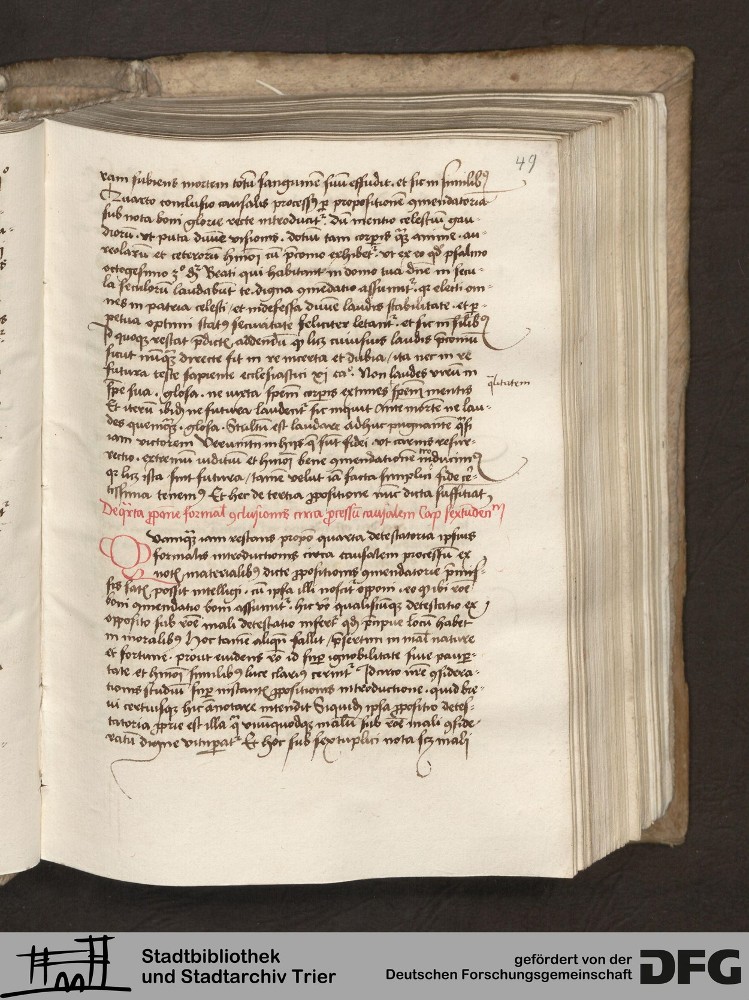 49
vam subiens mortem totū sanguinē suū effudit. et sic in similib9
Quarto conclusio causalis process9 ꝑ propositionē ꝯmendatoria
sub nota boni glorie recte introducit᷑. dū mentio celestiū gau-
dioru. vt puta diuīe visionis. dotiū tam corpis qͣꝫ anime. au-
reolarū et ceterorū hmōi cū p̄conio exhibet᷑. vt ex eo qd̓ psalmo
octogesimo 3º dr̄ Beati qui habitant in domo tua dn̄e in secu-
la seculorū laudabūt te. digna ꝯmēdatio assumit᷑. qꝛ electi om-
nes in patria celesti / et indefessa diuīe laudis stabilitate. et ꝑ-
petua optimi stat9 securitate feliciter letant᷑. et sic in silib9
quoqꝫ restat addendū cuiusuis laudis p̄coniū
sicut nūqͣꝫ directe fit in re incerta et dubia / ita nec in re
futura teste sapiente ecclesiastici xi caº. Non laudes virū in
qͣlitatem
spē sua. glosa. ne iuxta spēm corpis extimes spēm mentis
Et iterū ibidē ne futura laudent᷑ sic inquit Ante mortē ne lau-
des quemqͣꝫ. glosa. Stultū est laudare adhuc pugnantē qͣsi
iam victorem Verumtn̄ in hijs q̄ sūt fidei. vt carnis resur-
rectio. extremū iudiciū et hmōi bene ꝯmendationē inducim9
qꝛ licꝫ ista sint futura / tamē velut iā facta simplici fide c̓-
tissima tenem9 Et hec de tertia ꝓpositione nūc dicta sufficiāt
De qͣrta ꝓpōne formal̓ ꝯclusionis circa ꝓcessū causalem Cap sextūdecim
Quamqͣꝫ iam restans propō quarta detestatoria ipsius
formalis introductionis circa causalem processū ex
materialib9 dicte ꝓpositionis ꝯmendatorie
possit intelligi. cū ipsa illi noscit᷑ opponi. eo qꝛ ibi rōe
boni ꝯmendatio boni assumit᷑. hic vo̓ qualisciūqꝫ detestatio ex
opposito sub rōe mali detestatio infert᷑ qd̓ p̄cipue locū habet
in moralib9 Hoc tamē aliqn̄ fallit / p̄sertim in mal̓ nature
et fortune. prout euidens rō id sup ignobilitate siue pauꝑ-
tate et hmōi similib9 luce clarius cernit᷑ Idcirco ꝯsidera-
tionis studiū sup instantꝭ ꝓpositionis introductione. quid bre-
ui certiusqꝫ hic ānotare intendit Siquidē ipsa ꝓpositio detes-
tatoria ꝓprie est illa qͣ vnūquodqꝫ malū sub rōe mali ꝯside-
ratū digne vituꝑat᷑ Et hoc sub sextuplici nota scꝫ mali
Stadtbibliothek
und Stadtarchiv Trier
gefördert von der
Deutschen Forschungsgemeinschaft
DFG